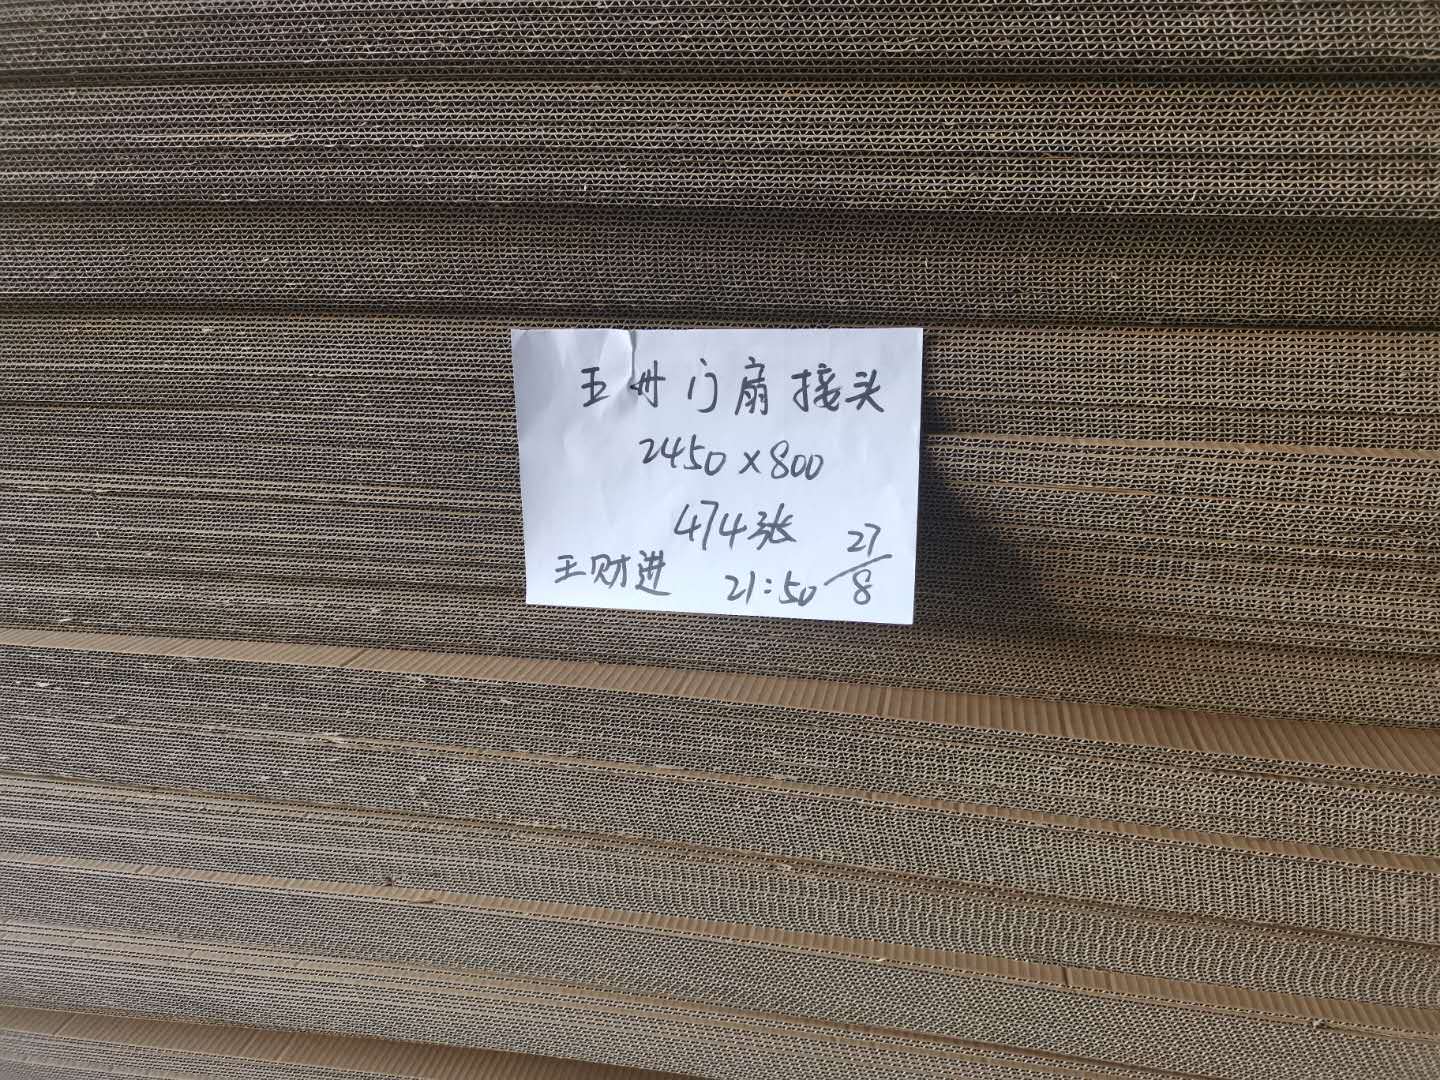 王州门扇接头
2450×800
474张
王财进 21:50 27/8